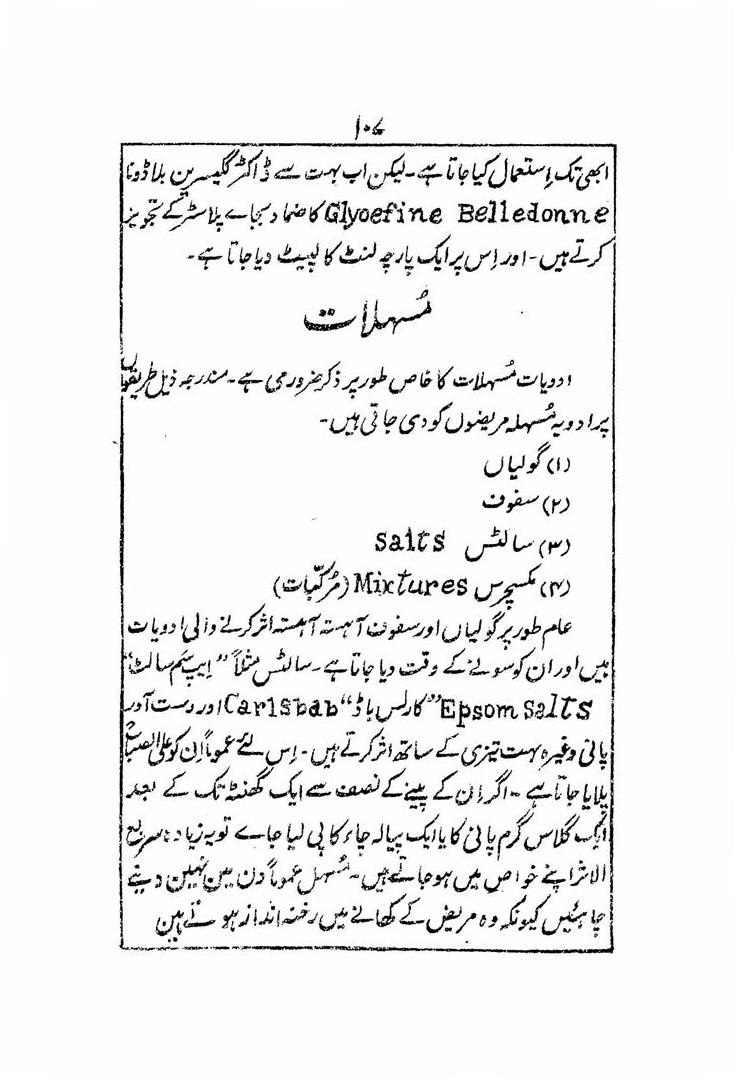 ۱۰۷
ابھی تک اِستعمال کیا جاتا ہے۔ لیکن اب بہت سے ڈاکٹر گلیسرین بلاڈونا
Glyoefine Belledonne کا ضماد بجاے پلاسٹر کے تجویز
کرتے ہیں۔ اور اِس پر ایک پارچہ لنٹ کا لپیٹ دیا جاتا ہے۔
مُسہلات
ادویات مُسہلات کا خاص طور پر ذکر ضروری ہے۔ مندرجہ ذیل طریقوں
پر ادویہ مُسہلہ مریضوں کو دی جاتی ہیں۔
(۱) گولیاں
(۲) سفوف
(۳) سالٹس Salts
(۴) مکسچرس Mixtures (مُرکّبات)
عام طور پر گولیاں اور سفوف آہستہ آہستہ اثر کرنے والی ادویات
ہیں اور ان کو سونے کے وقت دیا جاتا ہے۔ سالٹس مثلاً "ایپسَم سالٹ"
Epsom Salts "کارلس باڈ" Carlsbab اور دست آور
پانی وغیرہ بہت تیزی کے ساتھ اثر کرتے ہیں۔ اِس لئے عموماً اِن کو علی الصباح
پلایا جاتا ہے۔ اگر اِن کے پینے کے نصف سے ایک گھنٹہ تک کے بعد
ایک گلاس گرم پانی کا یا ایک پیالہ چاء کا پی لیا جاے تو یہ زیادہ سریع
الاثر اپنے خواص میں ہو جاتے ہیں۔ مُسہل عموماً دن میں نہیں دینے
چاہئیں کیونکہ وہ مریض کے کھانے میں رخنہ انداز ہوتے ہیں